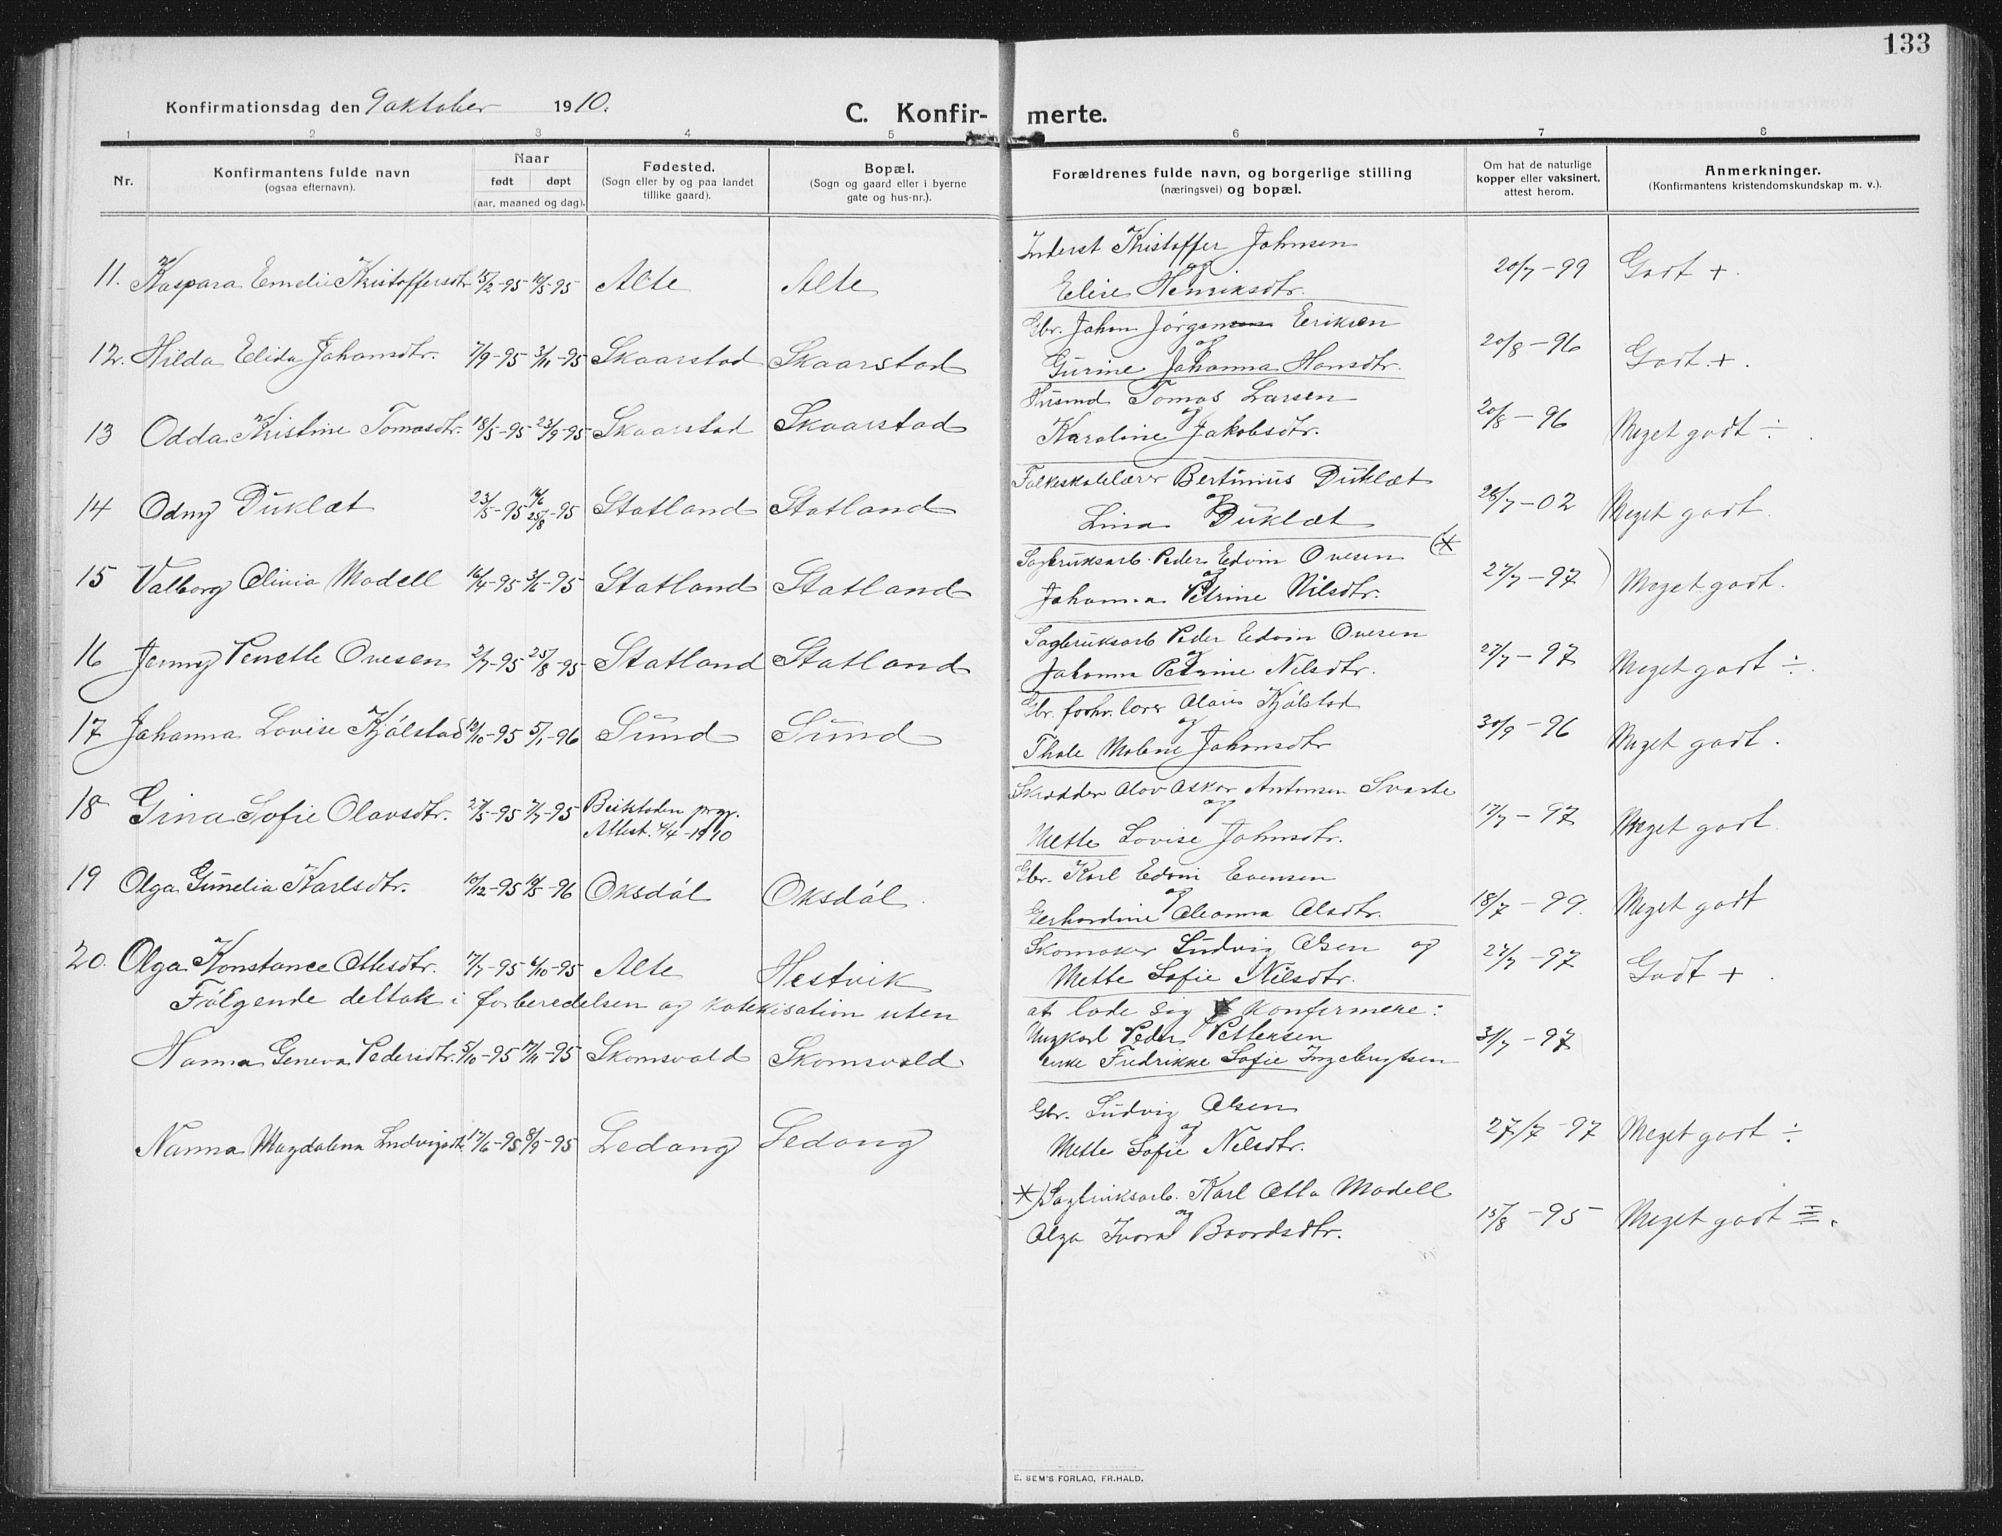 133
Konfirmationsdag den 9 oktober 1910.
C. Konfir- merte.
1 2 3 4 5 6 7 8
Nr.
Konfirmantens fulde navn
(ogsaa efternavn).
Naar
født døpt
(aar, maaned og dag).
Fødested.
(Sogn eller by og paa landet
tillike gaard).
Bopæl.
(Sogn og gaard eller i byerne
gate og hus-nr.).
Forældrenes fulde navn, og borgerlige stilling
(næringsvei) og bopæl.
Om hat de naturlige
kopper eller vaksinert,
attest herom.
Anmerkninger.
(Konfirmantens kristendomskundskap m. v.).
Inderst Kristoffer Johnsen
og
11. Kaspara Emelie Kristoffersdtr. 15/2-95 19/5-95 Alte Alte
Elise Henriksdtr. 20/7-99 Godt +.
Gbr. Johan Jörgen Eriksen
og
12. Hilda Elida Johansdtr. 7/9-95 3/11-95 Skaarstad Skaarstad
Gurine Johanna Hansdtr. 20/8-96 Godt. +.
Husmd Tomas Larsen
og
13 Odda Kristine Tomasdtr. 18/5-95 23/9-95 Skaarstad Skaarstad
Karoline Jakobsdtr. 20/8-96 Meget godt ÷.
Folkeskolelærer Bertinius Duklæt
og
14 Odny Duklæt 23/5-95 25/8-95 Statland Statland
Lina Duklæt 28/7-02 Meget godt.
Sagbruksarb. Peder Edvin Ovesen (*
og
15 Valborg Olivia Modell 16/4-95 3/6-95 Statland Statland
Johanna Petrine Nilsdtr. 27/7-97) Meget godt.
Sagbruksarb Peder Edvin Ovesen
og
16 Jenny Penelle Ovesen 2/7-95 25/8-95 Statland Statland
Johanna Petrine Nilsdtr. 27/7-97 Meget godt ÷.
Gbr. forhv. lærer Olais Kjölstad
og
17 Johanna Lovise Kjölstad 10/10-95 5/1-96 Sund Sund
Thale Malene Johansdtr 30/9-96 Meget godt.
Skrædder Olov Oskar Antonsen Svarte
og
18 Gina Sofie Olavsdtr. 27/5-95 7/7-95 Beitstaden prgj.
Attest. 4/4-1910
Mette Lovise Johnsdtr. 17/7-97 Meget godt
Gbr. Karl Edvin Evensen
og
19 Olga Gunelia Karlsdtr. 10/12-95 10/5-96 Oksdöl Oksdöl.
Gerhardine Oleanna Olsdtr. 18/7-99. Meget godt
Skomaker Ludvig Olsen og
20. Olga Konstance Ottesdtr. 7/7-95 6/10-95 Alte Hestvik
Mette Sofie Nilsdtr. 27/7-97 Godt +.
Fölgende deltok i forberedelsen og katekisation uten at lade sig konfirmere:
Ungkarl Peder Pettersen
Hanna Geneva Pedersdtr. 5/10-95 17/11-95 Skomsvold Skomsvold
enke Fredrikke Sofie Ingebrigtsen 31/7-97
Gbr. Ludvig Olsen
og
Nanna Magdalena Ludvigsdtr 17/6-95 8/9-95 Ledang Ledang
Mette Sofie Nilsdtr. 27/7-97 Meget godt ÷
*) Sagbruksarb. Karl Otto Modell
og
Olga Ivora Baardsdtr. 15/8-95 Meget godt
E. SEM'S FORLAG, FR.HALD.